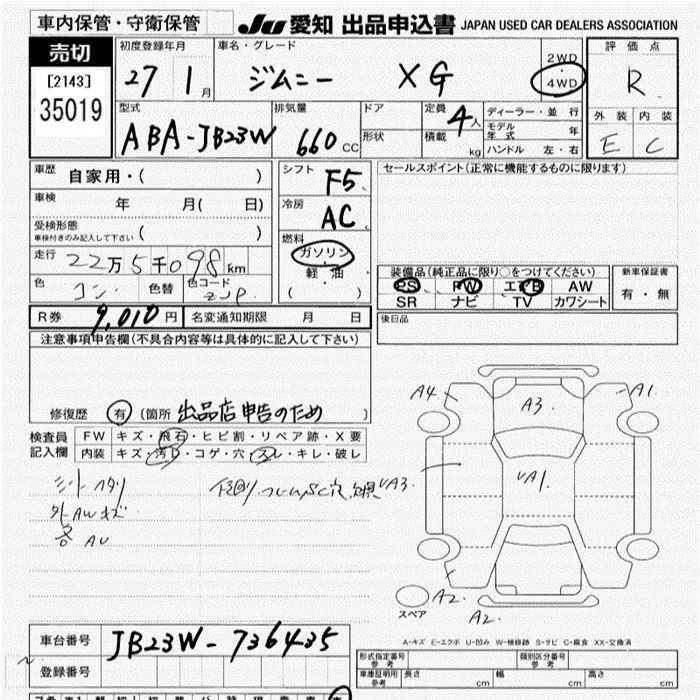 車内保管・守衛保管
JU 愛知 出品申込書 JAPAN USED CAR DEALERS ASSOCIATION
売切
[2143]
35019
初度登録年月
27 1月
車名・グレード
ジムニー XG
2WD
・
4WD
評価点
R
外装 内装
E C
型式
ABA-JB23W
排気量
660 CC
ドア
形状
定員 4人
積載 kg
ディーラー・並行
モデル年式 年
ハンドル 左・右
車歴 自家用・( )
車検 年 月( 日)
受検形態
車検付きのみ記入して下さい ( )
走行 22万5千098km
色 コン 色替 色コード ZJP
シフト F5
冷房 AC
燃料
ガソリン
軽・油
( )
セールスポイント(正常に機能するものに限ります)
装備品(純正品に限り○をつけてください)
PS PW エアB AW
SR ナビ TV カワシート
新車保証書
有・無
後日品
R券 9,010円 名変通知期限 月 日
注意事項申告欄(不具合内容等は具体的に記入して下さい)
修復歴 有 (箇所 出品店申告のため )
検査員記入欄
FW キズ・飛石・ヒビ割・リペア跡・X要
内装 キズ・汚レ・コゲ・穴・スレ・キレ・破レ
シートヘタリ
外AWキズ
各AU
下回り、フレームSC穴
A4 A1
A3
UA3 UA1
A2 A2
スペア
A-キズ E-エクボ U-凹み W-補修跡 S-サビ C-腐食 XX-交換済
車台番号 JB23W-736435
登録番号
形式指定番号 参考
類別区分番号 参考
車庫証明用 参考 長さ cm 幅 cm 高さ cm